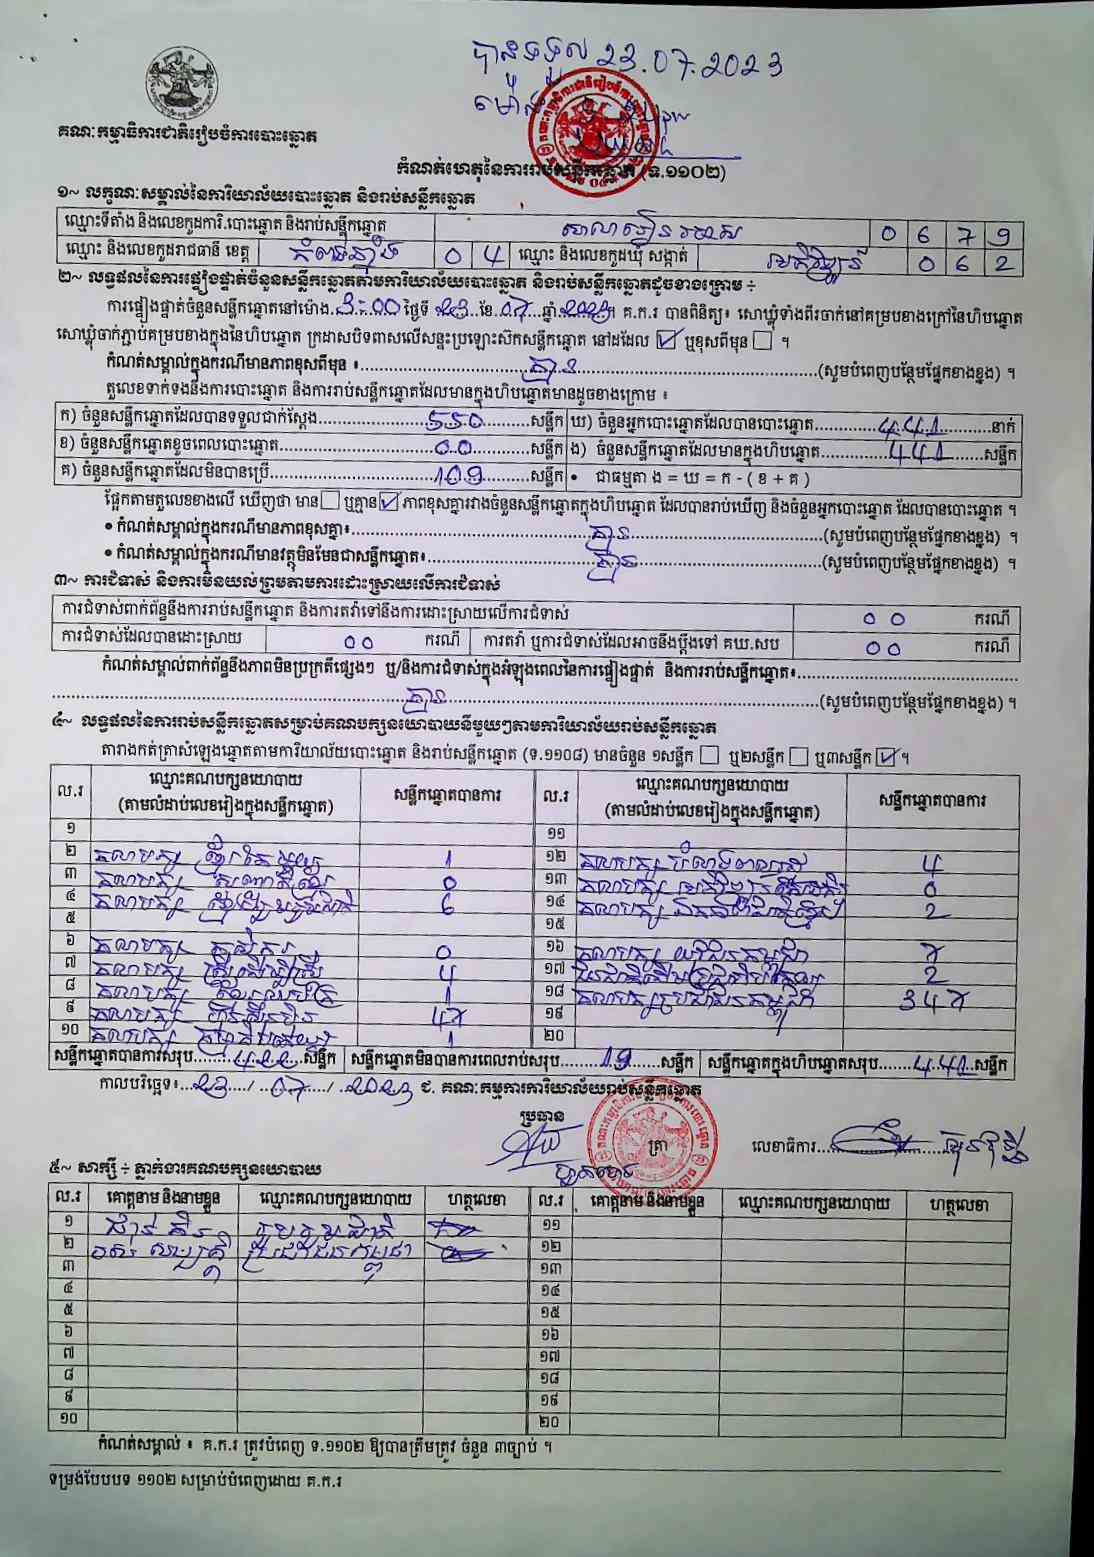 បានទទួល 23.07.2023
ម៉ោង
គណៈកម្មាធិការជាតិរៀបចំការបោះឆ្នោត
កំណត់ហេតុនៃការរាប់សន្លឹកឆ្នោត (ទ.១១០២)
១~ លក្ខណៈសម្គាល់នៃការិយាល័យបោះឆ្នោត និងរាប់សន្លឹកឆ្នោត
ឈ្មោះទីតាំង និងលេខកូដការិ.បោះឆ្នោត និងរាប់សន្លឹកឆ្នោត 0 6 7 9
ឈ្មោះ និងលេខកូដរាជធានី ខេត្ត កំពង់ឆ្នាំង 0 4 ឈ្មោះ និងលេខកូដឃុំ សង្កាត់ 0 6 2
២~ លទ្ធផលនៃការផ្ទៀងផ្ទាត់ចំនួនសន្លឹកឆ្នោតតាមការិយាល័យបោះឆ្នោត និងរាប់សន្លឹកឆ្នោតដូចខាងក្រោម ÷
ការផ្ទៀងផ្ទាត់ចំនួនសន្លឹកឆ្នោតនៅម៉ោង 3:00 ថ្ងៃទី 23 ខែ 07 ឆ្នាំ 2023 ។ គ.ក.រ បានពិនិត្យ៖ សោឃ្លុំទាំងពីរចាក់នៅគម្របខាងក្រៅនៃហិបឆ្នោត
សោឃ្លុំចាក់ភ្ជាប់គម្របខាងក្នុងនៃហិបឆ្នោត ក្រដាសបិទពាសលើសន្ទះប្រឡោះស៊កសន្លឹកឆ្នោត នៅដដែល ☑ ឬខុសពីមុន ☐ ។
កំណត់សម្គាល់ក្នុងករណីមានភាពខុសពីមុន ៖ គ្មាន (សូមបំពេញបន្ថែមផ្នែកខាងខ្នង) ។
តួលេខទាក់ទងនឹងការបោះឆ្នោត និងការរាប់សន្លឹកឆ្នោតដែលមានក្នុងហិបឆ្នោតមានដូចខាងក្រោម ៖
ក) ចំនួនសន្លឹកឆ្នោតដែលបានទទួលជាក់ស្តែង 550 សន្លឹក ឃ) ចំនួនអ្នកបោះឆ្នោតដែលបានបោះឆ្នោត 441 នាក់
ខ) ចំនួនសន្លឹកឆ្នោតខូចពេលបោះឆ្នោត 00 សន្លឹក ង) ចំនួនសន្លឹកឆ្នោតដែលមានក្នុងហិបឆ្នោត 441 សន្លឹក
គ) ចំនួនសន្លឹកឆ្នោតដែលមិនបានប្រើ 109 សន្លឹក • ជាធម្មតា ង = ឃ = ក - ( ខ + គ )
ផ្អែកតាមតួលេខខាងលើ ឃើញថា មាន ☐ ឬគ្មាន ☑ ភាពខុសគ្នារវាងចំនួនសន្លឹកឆ្នោតក្នុងហិបឆ្នោត ដែលបានរាប់ឃើញ និងចំនួនអ្នកបោះឆ្នោត ដែលបានបោះឆ្នោត ។
• កំណត់សម្គាល់ក្នុងករណីមានភាពខុសគ្នា៖ គ្មាន (សូមបំពេញបន្ថែមផ្នែកខាងខ្នង) ។
• កំណត់សម្គាល់ក្នុងករណីមានវត្ថុមិនមែនជាសន្លឹកឆ្នោត៖ គ្មាន (សូមបំពេញបន្ថែមផ្នែកខាងខ្នង) ។
៣~ ការជំទាស់ និងការមិនយល់ព្រមតាមការដោះស្រាយលើការជំទាស់
ការជំទាស់ពាក់ព័ន្ធនឹងការរាប់សន្លឹកឆ្នោត និងការតវ៉ាទៅនឹងការដោះស្រាយលើការជំទាស់ 00 ករណី
ការជំទាស់ដែលបានដោះស្រាយ 00 ករណី ការតវ៉ា ឬការជំទាស់ដែលអាចនឹងប្តឹងទៅ គឃ.សប 00 ករណី
កំណត់សម្គាល់ពាក់ព័ន្ធនឹងភាពមិនប្រក្រតីផ្សេងៗ ឬ/និងការជំទាស់ក្នុងអំឡុងពេលនៃការផ្ទៀងផ្ទាត់ និងការរាប់សន្លឹកឆ្នោត៖
គ្មាន (សូមបំពេញបន្ថែមផ្នែកខាងខ្នង) ។
៤~ លទ្ធផលនៃការរាប់សន្លឹកឆ្នោតសម្រាប់គណបក្សនយោបាយនីមួយៗតាមការិយាល័យរាប់សន្លឹកឆ្នោត
តារាងកត់ត្រាសំឡេងឆ្នោតតាមការិយាល័យបោះឆ្នោត និងរាប់សន្លឹកឆ្នោត (ទ.១១០៨) មានចំនួន ១សន្លឹក ☐ ឬ២សន្លឹក ☐ ឬ៣សន្លឹក ☑ ។
ល.រ ឈ្មោះគណបក្សនយោបាយ (តាមលំដាប់លេខរៀងក្នុងសន្លឹកឆ្នោត) សន្លឹកឆ្នោតបានការ ល.រ ឈ្មោះគណបក្សនយោបាយ (តាមលំដាប់លេខរៀងក្នុងសន្លឹកឆ្នោត) សន្លឹកឆ្នោតបានការ
១ ១១
២ គណបក្ស 1 ១២ គណបក្ស 4
៣ គណបក្ស 0 ១៣ គណបក្ស 0
៤ គណបក្ស 6 ១៤ គណបក្ស 2
៥ ១៥
៦ គណបក្ស 0 ១៦ គណបក្ស យុវជនកម្ពុជា 7
៧ គណបក្ស 4 ១៧ 2
៨ គណបក្ស 1 ១៨ គណបក្សប្រជាជនកម្ពុជា 347
៩ គណបក្ស 47 ១៩
១០ គណបក្ស 1 ២០
សន្លឹកឆ្នោតបានការសរុប 422 សន្លឹក សន្លឹកឆ្នោតមិនបានការពេលរាប់សរុប 19 សន្លឹក សន្លឹកឆ្នោតក្នុងហិបឆ្នោតសរុប 441 សន្លឹក
កាលបរិច្ឆេទ៖ 23 / 07 / 2023 ជ. គណៈកម្មការការិយាល័យរាប់សន្លឹកឆ្នោត
ប្រធាន
ត្រា
លេខាធិការ
៥~ សាក្សី ÷ ភ្នាក់ងារគណបក្សនយោបាយ
ល.រ គោត្តនាម និងនាមខ្លួន ឈ្មោះគណបក្សនយោបាយ ហត្ថលេខា ល.រ គោត្តនាម និងនាមខ្លួន ឈ្មោះគណបក្សនយោបាយ ហត្ថលេខា
១ ១១
២ ប្រជាជនកម្ពុជា ១២
៣ ១៣
៤ ១៤
៥ ១៥
៦ ១៦
៧ ១៧
៨ ១៨
៩ ១៩
១០ ២០
កំណត់សម្គាល់ ៖ គ.ក.រ ត្រូវបំពេញ ទ.១១០២ ឱ្យបានត្រឹមត្រូវ ចំនួន ៣ច្បាប់ ។
ទម្រង់បែបបទ ១១០២ សម្រាប់បំពេញដោយ គ.ក.រ